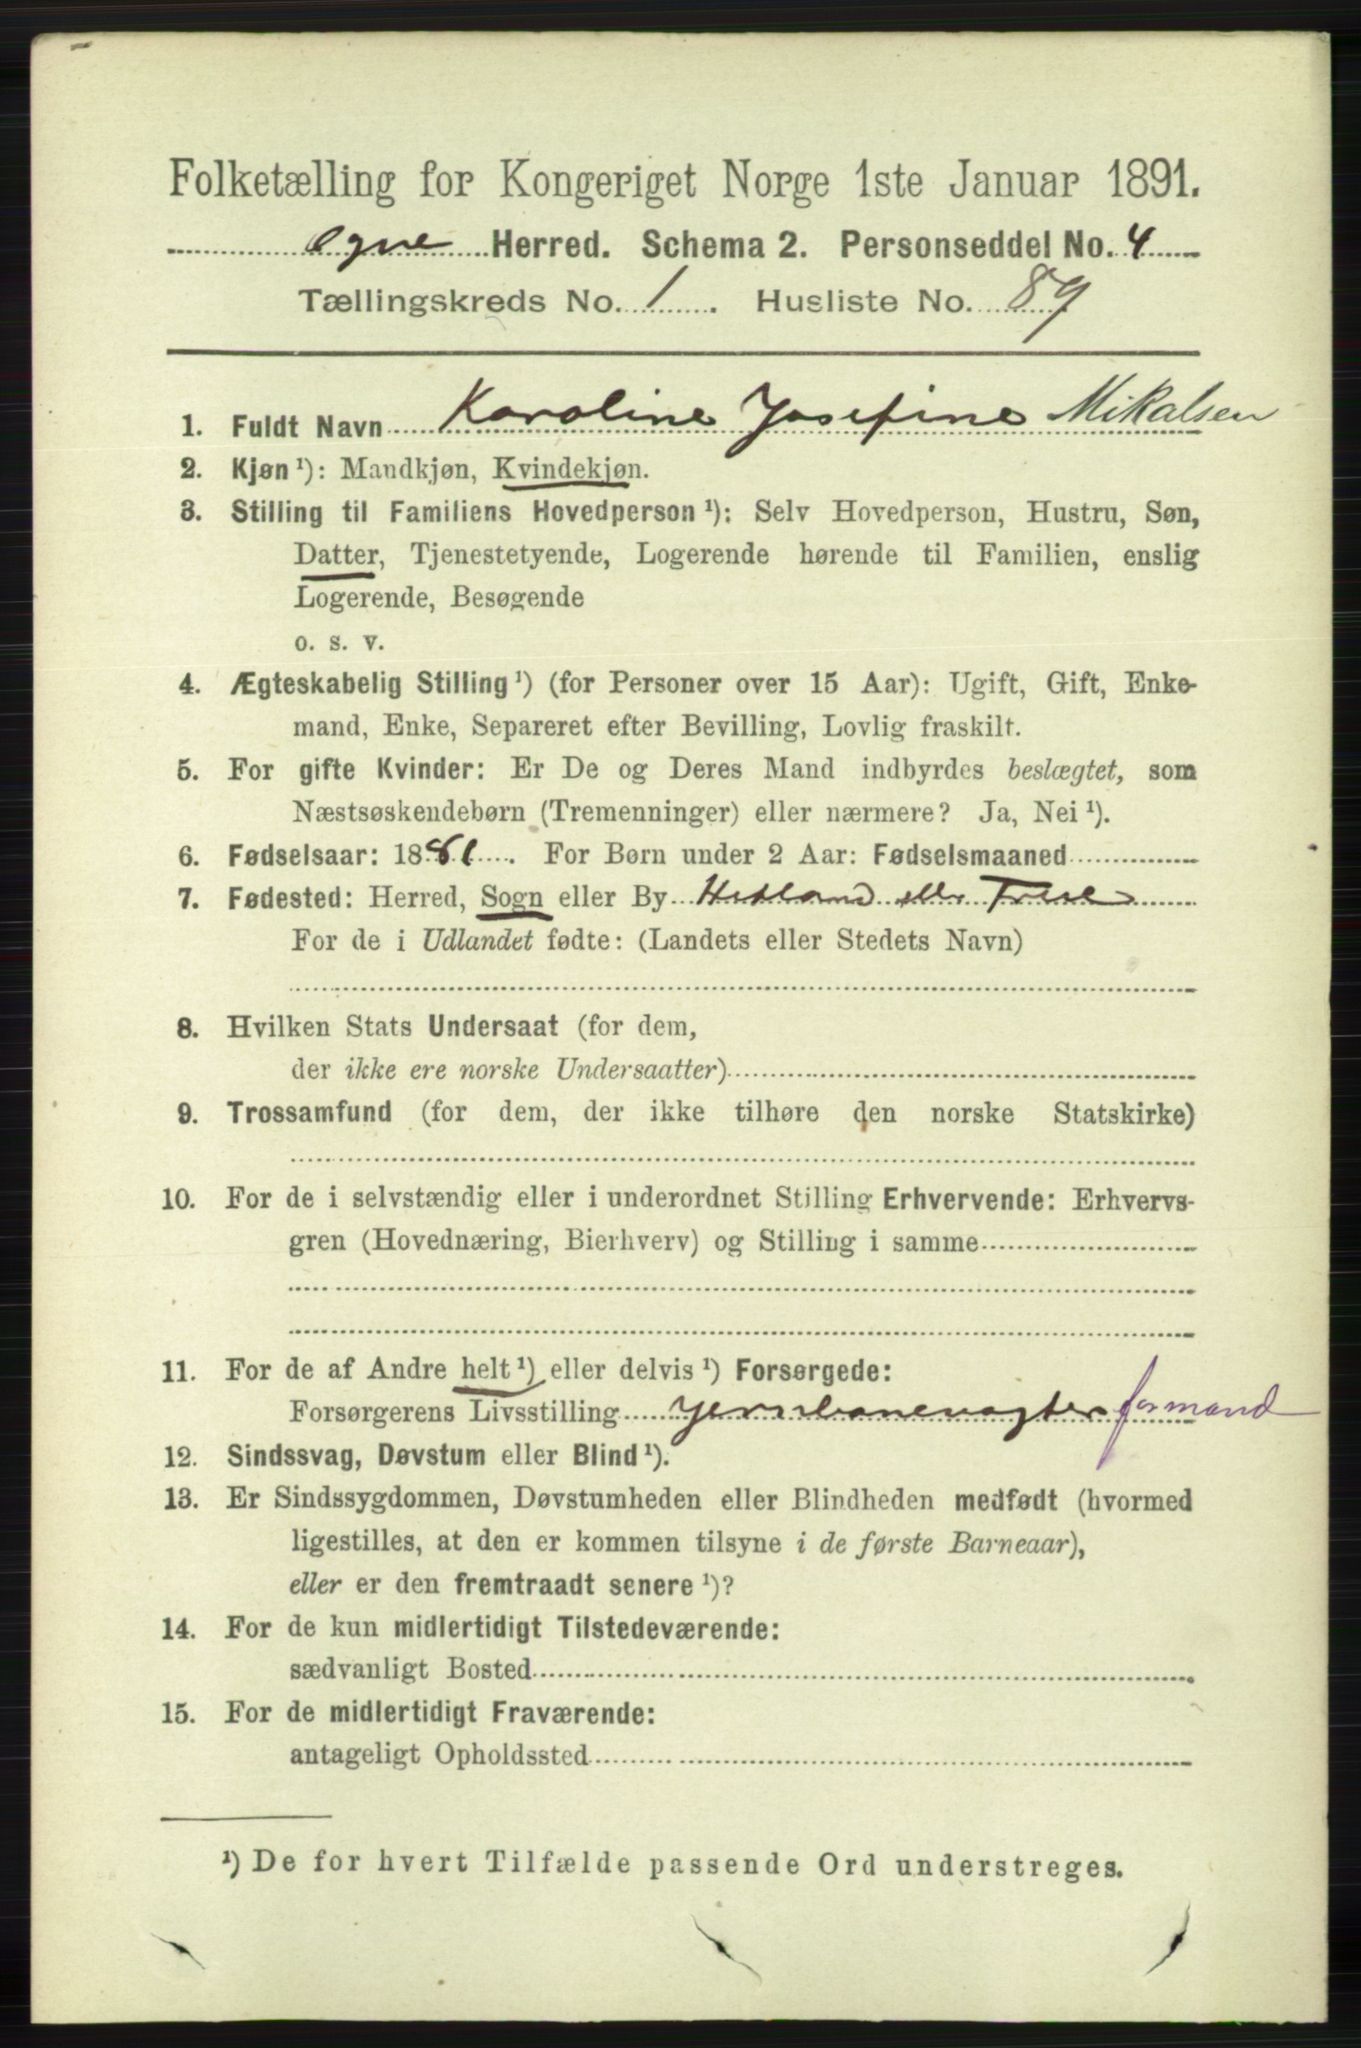 Folketælling for Kongeriget Norge 1ste Januar 1891.
Ogne Herred. Schema 2. Personseddel No. 4
Tællingskreds No. 1. Husliste No. 89
1. Fuldt Navn Karoline Josefine Mikalsen
2. Kjøn ¹): Mandkjøn, Kvindekjøn.
3. Stilling til Familiens Hovedperson ¹): Selv Hovedperson, Hustru, Søn,
Datter, Tjenestetyende, Logerende hørende til Familien, enslig
Logerende, Besøgende
o. s. v.
4. Ægteskabelig Stilling ¹) (for Personer over 15 Aar): Ugift, Gift, Enke-
mand, Enke, Separeret efter Bevilling, Lovlig fraskilt.
5. For gifte Kvinder: Er De og Deres Mand indbyrdes beslægtet, som
Næstsøskendebørn (Tremenninger) eller nærmere? Ja, Nei ¹).
6. Fødselsaar: 1881. For Børn under 2 Aar: Fødselsmaaned
7. Fødested: Herred, Sogn eller By Hetland eller
For de i Udlandet fødte: (Landets eller Stedets Navn)
8. Hvilken Stats Undersaat (for dem,
der ikke ere norske Undersaatter)
9. Trossamfund (for dem, der ikke tilhøre den norske Statskirke)
10. For de i selvstændig eller i underordnet Stilling Erhvervende: Erhvervs-
gren (Hovednæring, Bierhverv) og Stilling i samme
11. For de af Andre helt ¹) eller delvis ¹) Forsørgede:
Forsørgerens Livsstilling Jernbanevogter formand
12. Sindssvag, Døvstum eller Blind ¹).
13. Er Sindssygdommen, Døvstumheden eller Blindheden medfødt (hvormed
ligestilles, at den er kommen tilsyne i de første Barneaar),
eller er den fremtraadt senere ¹)?
14. For de kun midlertidigt Tilstedeværende:
sædvanligt Bosted
15. For de midlertidigt Fraværende:
antageligt Opholdssted
¹) De for hvert Tilfælde passende Ord understreges.